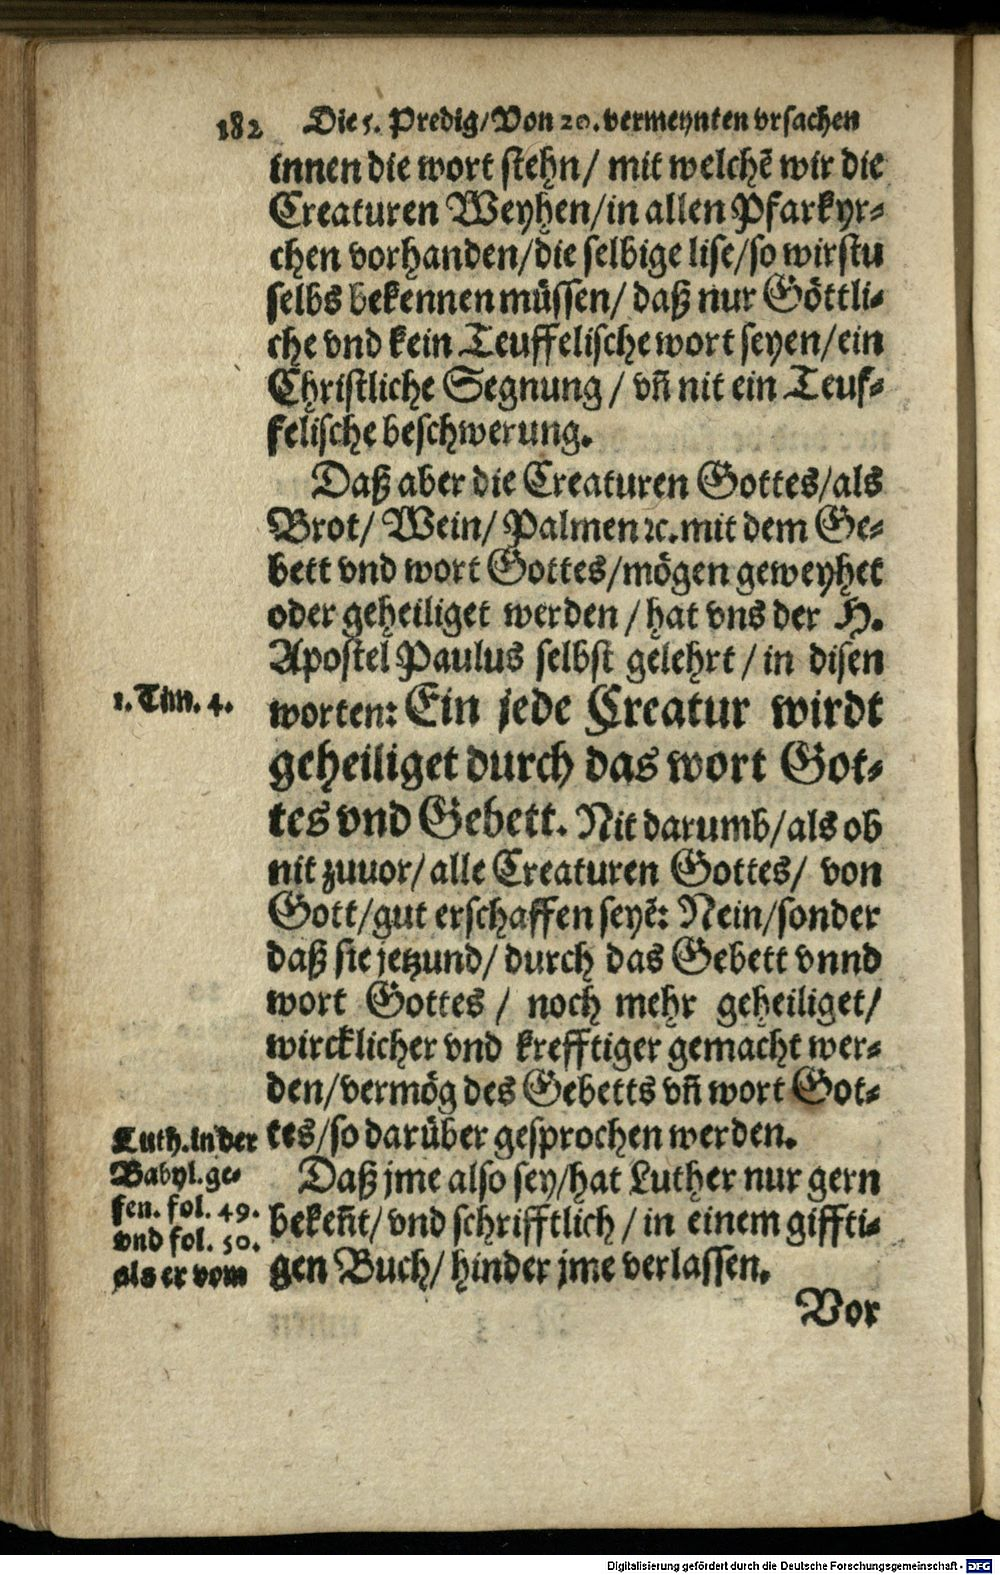 182 Die 5. Predig/Von 20. vermeynten vrsachen
innen die wort stehn/ mit welchē wir die
Creaturen Weyhen/in allen Pfarkyr⸗
chen vorhanden/die selbige lise/so wirstu
selbs bekennen müssen/ daß nur Göttli⸗
che vnd kein Teuffelische wort seyen/ein
Christliche Segnung / vñ nit ein Teuf⸗
felische beschwerung.
Daß aber die Creaturen Gottes/als
Brot/ Wein/ Palmen ꝛc. mit dem Ge⸗
bett vnd wort Gottes/mögen geweyhet
oder geheiliget werden / hat vns der H.
Apostel Paulus selbst gelehrt / in disen
1. Tim. 4.
worten: Ein jede Creatur wirdt
geheiliget durch das wort Got⸗
tes vnd Gebett. Nit darumb/als ob
nit zuuor/ alle Creaturen Gottes/ von
Gott/gut erschaffen seyē: Nein/sonder
daß sie jetzund/ durch das Gebett vnnd
wort Gottes / noch mehr geheiliget/
wircklicher vnd krefftiger gemacht wer⸗
den/vermög des Gebetts vñ wort Got⸗
tes/so darüber gesprochen werden.
Daß jme also sey/hat Luther nur gern
bekeñt/ vnd schrifftlich / in einem giffti⸗
gen Buch/ hinder jme verlassen.
Luth. in der
Babyl. ge⸗
fen. fol. 49.
vnd fol. 50.
als er vom
Vor
Digitalisierung gefördert durch die Deutsche Forschungsgemeinschaft - DFG